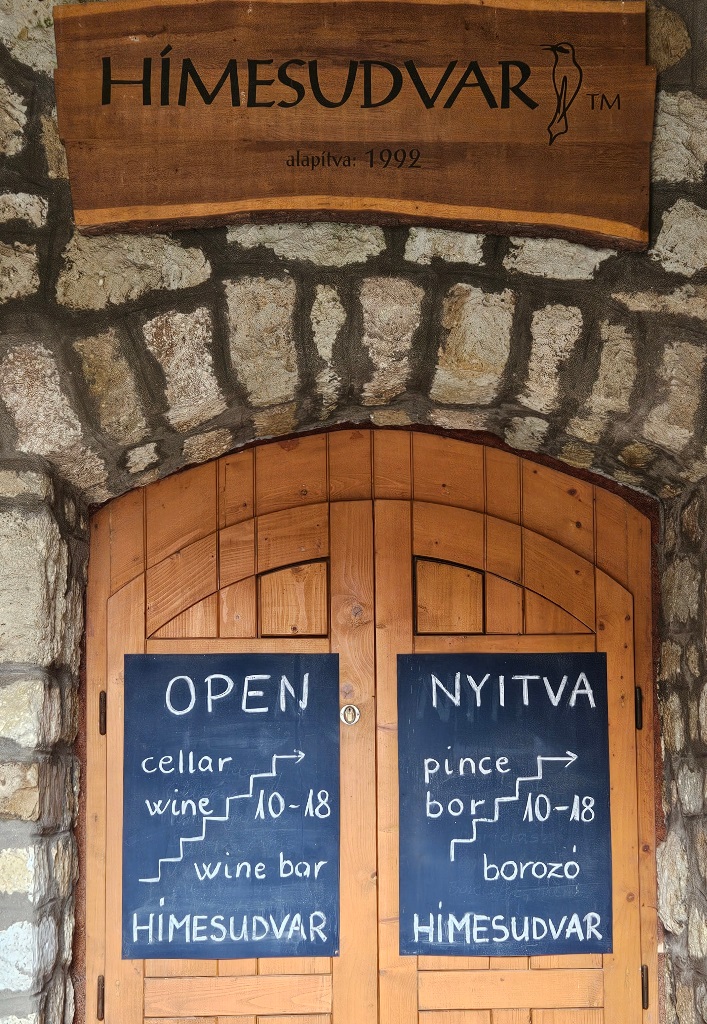 HÍMESUDVAR TM
alapítva: 1992
OPEN
cellar
wine 10-18
wine bar
HÍMESUDVAR
NYITVA
pince
bor 10-18
borozó
HÍMESUDVAR